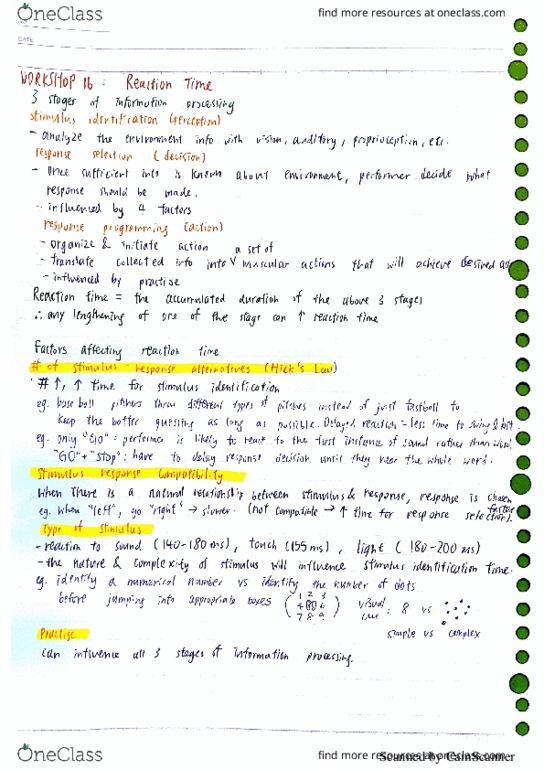 OneClass
find more resources at oneclass.com
DATE
WORKSHOP 16 : Reaction Time
3 stages of information processing
stimulus identification (perception)
- analyze the environment info with vision, auditory, proprioception, etc.
response selection (decision)
- Once sufficient info is known about environment, performer decide what
response should be made.
- influenced by 4 factors
response programming (action)
- organize & initiate action
a set of
- translate collected info into v muscular actions that will achieve desired
- influenced by practise
Reaction time = the accumulated duration of the above 3 stages
∴ any lengthening of one of the stage can ↑ reaction time
Factors affecting reaction time
# of stimulus - response alternatives (Hick's Law)
- # ↑, ↑ time for stimulus identification
eg. baseball pitchers throw different types of pitches instead of just fastball to
keep the batter guessing as long as possible. Delayed reaction - less time to swing & hit.
eg. only "GO" : performer is likely to react to the first instance of sound rather than word.
"GO" + "stop" : have to delay response decision until they hear the whole word.
Stimulus response compatibility
When there is a natural relationship between stimulus & response, response is chosen
faster
eg. when "left", go "right" → slower. (not compatible → ↑ time for response selection).
Type of stimulus
- reaction to sound (140-180 ms), touch (155 ms), light (180-200 ms)
- the nature & complexity of stimulus will influence stimulus identification time.
eg. identify a numerical number vs identify the number of dots
before jumping into appropriate boxes
1 2 3
4 6
7 8 9
visual
cue : 8 vs
simple vs complex
Practise
can influence all 3 stages of information processing.
OneClass
find more resources at oneclass.com
Scanned by CamScanner